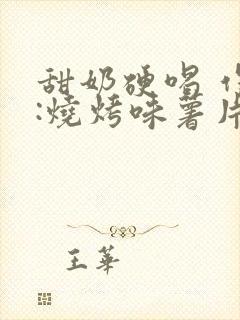 甜奶硬唱
:燒烤味薯片
王華